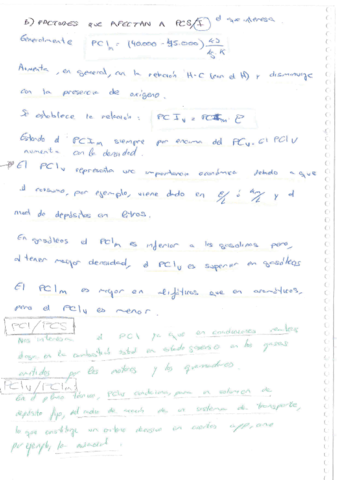 b) FACTORES QUE AFECTAN A PCS/I el que interesa
Generalmente PCIₘ = (40.000 - 45.000) kJ/kg K
Aumenta, en general, con la relación H-C (con el H) y disminuye
con la presencia de oxígeno.
Se establece la relación: PCIᵥ = PCIₘ · ρ
Estando el PCIₘ siempre por encima del PCIᵥ. El PCIᵥ
aumenta con la densidad.
El PCIᵥ representa una importancia económica debido a que
el consumo, por ejemplo, viene dado en y el
de depósitos en litros.
En gasóleos el PCIₘ es inferior a las gasolinas pero,
al tener mayor densidad, el PCIᵥ es superior en gasóleos
El PCIₘ es mayor en alifáticos que en aromáticos,
pero el PCIᵥ es menor.
PCI/PCS
Nos interesa el PCI ya que en condiciones
el agua en la combustión estará en estado gaseoso en los gases
emitidos por los motores y los quemadores.
PCIᵥ/PCIₘ
En el plano técnico, condiciona, para un volumen de
depósito fijo, el radio de acción de un sistema de transporte,
lo que constituye un criterio decisivo en ciertas app, como
por ejemplo, la